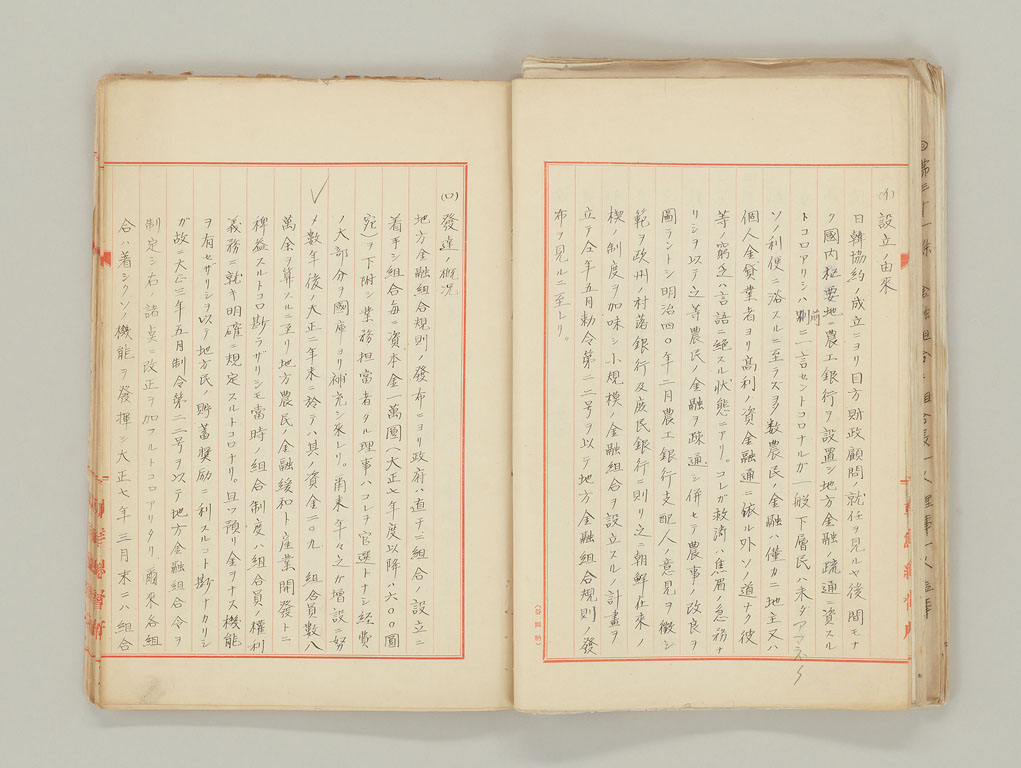 (イ) 設立ノ由来
日韓協約ノ成立ニヨリ目方財政顧問ノ就任ヲ見ルヤ後間モナ
ク國内枢要地ニ農工銀行ヲ設置シ地方金融ノ疏通ニ資スル
トコロアリシハ前ニ一言セントコロナルガ一般下層民ハ未ダアマネク
ソノ利便ニ浴スルニ至ラズ多数農民ノ金融ハ僅カニ地主又ハ
個人金貸業者ヨリ高利ノ資金融通ニ依ル外ソノ道ナク彼
等ノ窮乏ハ言語ニ絶スル状態ニアリ。コレガ救済ハ焦眉ノ急務ナ
リシヲ以テ之等農民ノ金融ヲ疎通シ併セテ農事ノ改良ヲ
圖ラントシ明治四〇年二月農工銀行支配人ノ意見ヲ徴シ
範ヲ欧州ノ村落銀行及庶民銀行ニ則リ之ニ朝鮮在来ノ
楔ノ制度ヲ加味シ小規模ノ金融組合ヲ設立スルノ計畫ヲ
立テ仝年五月勅令第三三号ヲ以テ地方金融組合規則ノ發
布ヲ見ルニ至レリ。
(ロ) 發達ノ概况
地方金融組合規則ノ發布ニヨリ政府ハ直チニ組合ノ設立ニ
着手シ組合毎ニ資本金一萬圜(大正七年度以降ハ六〇〇圓
宛)ヲ下附シ業務担當者タル理事ハコレヲ官選トナシ経費
ノ大部分ヲ國庫ヨリ補充シ来レリ。爾来年々之ガ増設ニ努
メ数年後ノ大正二年末ニ於テハ其ノ資金二〇九 組合員数八
萬余ヲ算スルニ至リ地方農民ノ金融緩和ト産業開發トニ
稗益スルトコロ尠ラザリシモ當時ノ組合制度ハ組合員ノ權利
義務ニ就キ明確ニ規定スルトコロナリ。且ツ預リ金ヲナス機能
ヲ有セザリシヲ以テ地方民ノ貯蓄奨励ニ利スルコト尠ナカリシ
ガ故ニ大正三年五月制令第二二号ヲ以テ地方金融組合令ヲ
制定シ右ノ諸点ニ改正ヲ加フルトコロアリタリ。爾来各組
合ハ着シクソノ機能ヲ發揮シ大正七年三月末ニハ組合